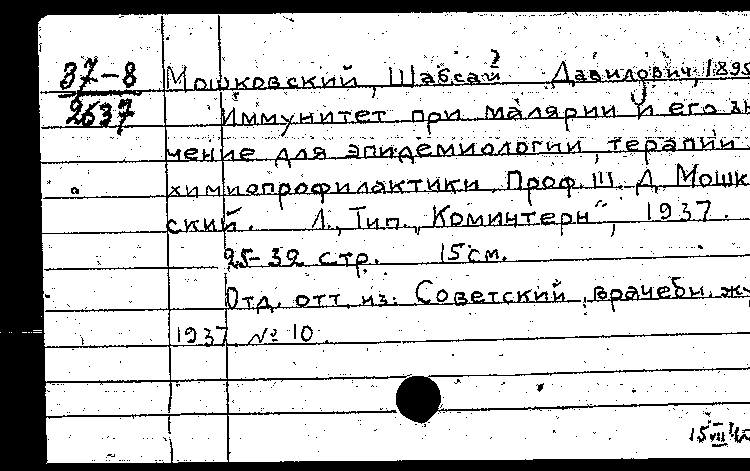 37-8
2637
Мошковский, Шабсай Давидович, 1895
Иммунитет при малярии и его зн
чение для эпидемиологии, терапии
химиопрофилактики. Проф. Ш. Д. Мошк
ский. Л., Тип. „Коминтерн“, 1937.
25-32 стр. 15 см.
Отд. отт. из: Советский врачебн. жу
1937 № 10.
15 VII